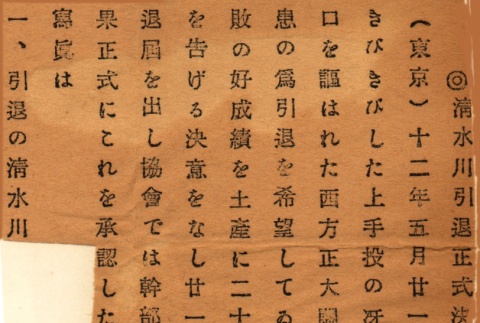 ◎清水川引退正式決
(東京)十二年五月廿一
きびきびした上手投の冴
口を謳はれた西方正大關
患の爲引退を希望してゐ
敗の好成績を土産に二十
を告げる決意をなし廿一
退屆を出し協會では幹部
果正式にこれを承認した
寫眞は
一、引退の清水川